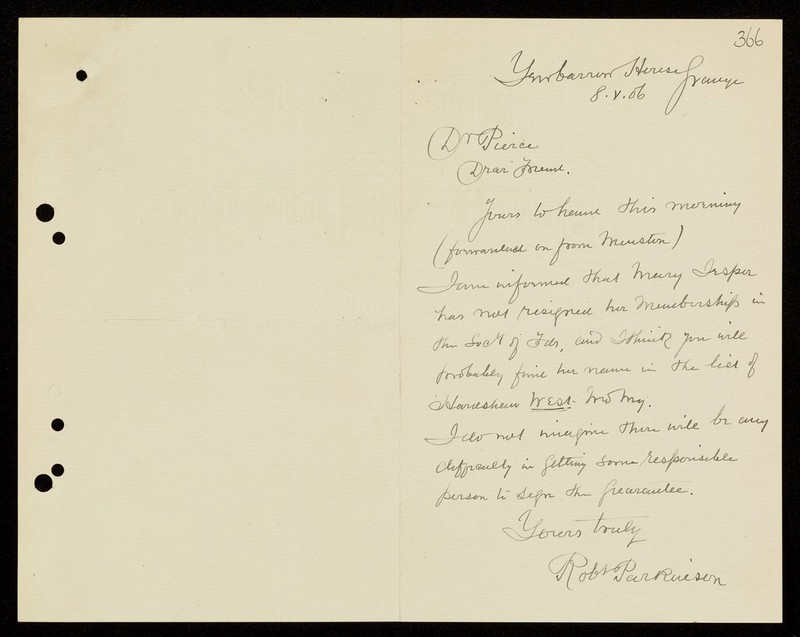 366
Yewbarrow House Grange
8.V.06
Dr Pierce
Dear Friend.
Yours to hand this morning
(forwarded on from Menston)
I am informed that Mary Jesper
has not resigned her Membership in
the Socy of Fds, and I think you will
probably find her name in the list of
Hardshaw West Mo Mg.
I do not imagine there will be any
difficulty in getting some responsible
person to sign the guarantee.
Yours truly
Robt Parkinson